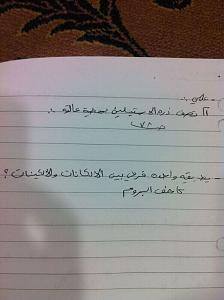 علل :
أ) تعرف ذرة الاستيلين بحمضية عالية .
ص ٧٨
بطريقة واحدة فرقي بين الالكانات والالكينات ؟
كاشف البروم